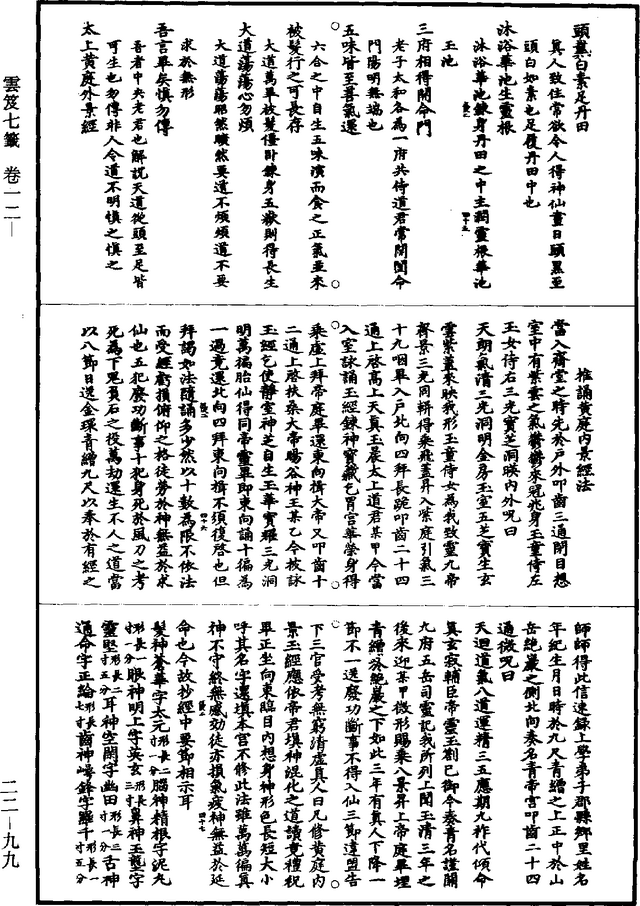 頭黛白素足丹田
真人致住常欲令人得神仙畫日頭黑至
頭白如素也足履丹田中也
沐浴華池生靈根
沐浴華池鍊身丹田之中生潤靈根華池
玉池
三府相得開命門
老子太和各為一府共侍道君常開閤命
門陽明無端也
五味皆至善氣還
六合之中自生五味演而食之正氣並來
被髮行之可長存
大道萬畢被髮偃卧鍊身五嶽則得長生
大道蕩蕩心勿煩
大道蕩蕩昭然曠然要道不煩煩道不要
求於無形
吾言畢矣慎勿傳
吾者中央老君也解說天道從頭至足皆
可生也勿傳非人令道不明慎之慎之
太上黃庭外景經
推誦黃庭內景經法
當入齋堂之時先於戶外叩齒三通閉目想
室中有紫雲之氣鬱鬱來冠兆身玉童侍左
玉女侍右三光寶芝洞暎內外呪曰
天朗氣清三光洞明金房玉室五芝寶生玄
雲紫蓋來映我形玉童侍女為我致靈九帝
齊景三光同軿得乘飛蓋昇入紫庭引氣三
十九咽畢入戶北向四拜長跪叩齒二十四
通上啓高上天真玉晨太上道君某甲今當
入室詠誦玉經鍊神寶藏乞胃宮華榮身得
乘虛上拜帝庭畢還東向揖大帝又叩齒十
二通上啓扶桑大帝暘谷神王某乙今披詠
玉經乞使靜室神芝自生玉華寶耀三光洞
明萬徧胎仙得同帝靈畢即東向誦十徧為
一過竟還北向四拜東向揖不須復啓也但
拜謁如法隨誦多少然以十數為限不依法
而受經虧損俯仰之格徒勞於神無益於求
仙也五犯廢功斷事十犯身死於風刀之考
死為下鬼負石之役萬劫還生不人之道當
以八節日送金環青繒九尺以奉於有經之
師師得此信速錄上學弟子郡縣鄉里姓名
年紀生月日時於九尺青繒之上正中於山
岳絕巖之側北向奏名青帝宮叩齒二十四
通微呪曰
天迴道氣八道運精三五應期九祚代傾命
真玄寂輔臣帝靈玉劄已御今奏青名謹關
九府五岳司靈記我所列上聞玉清三年之
後來迎某甲微形賜乘八景昇上帝庭畢埋
青繒於絕巖之下如此三年有真人下降一
節不一送廢功斷事不得入仙三節違盟告
下三官受考無窮清虛真人曰凡修黃庭內
景玉經應依帝君填神混化之道讀竟禮祝
畢正坐向東臨目內想身神形色長短大小
呼其名字還填本宮不修此法雖萬萬徧真
神不守終無感効徒亦損氣疲神無益於延
命也今故抄經中要節相示耳
髮神蒼華字太元形長二寸一分腦神精根字泥丸
形長一寸一分眼神明上字英玄形長三寸鼻神玉壟字
靈堅形長二寸五分耳神空閑字幽田形長三寸一分舌神
通命字正論形長七寸齒神崿鋒字羅千形長一寸五分
雲笈七籤 卷一二
二二—九九